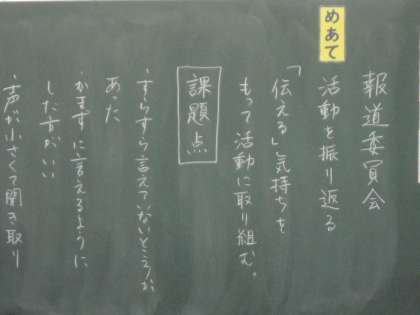 報道委員会
めあて
活動を振り返る
「伝える」気持ちを
もって活動に取り組む。
課題点
・すらすら言えていないところが
あった
・かまずに言えるように
した方がいい
・声が小さくて聞き取り